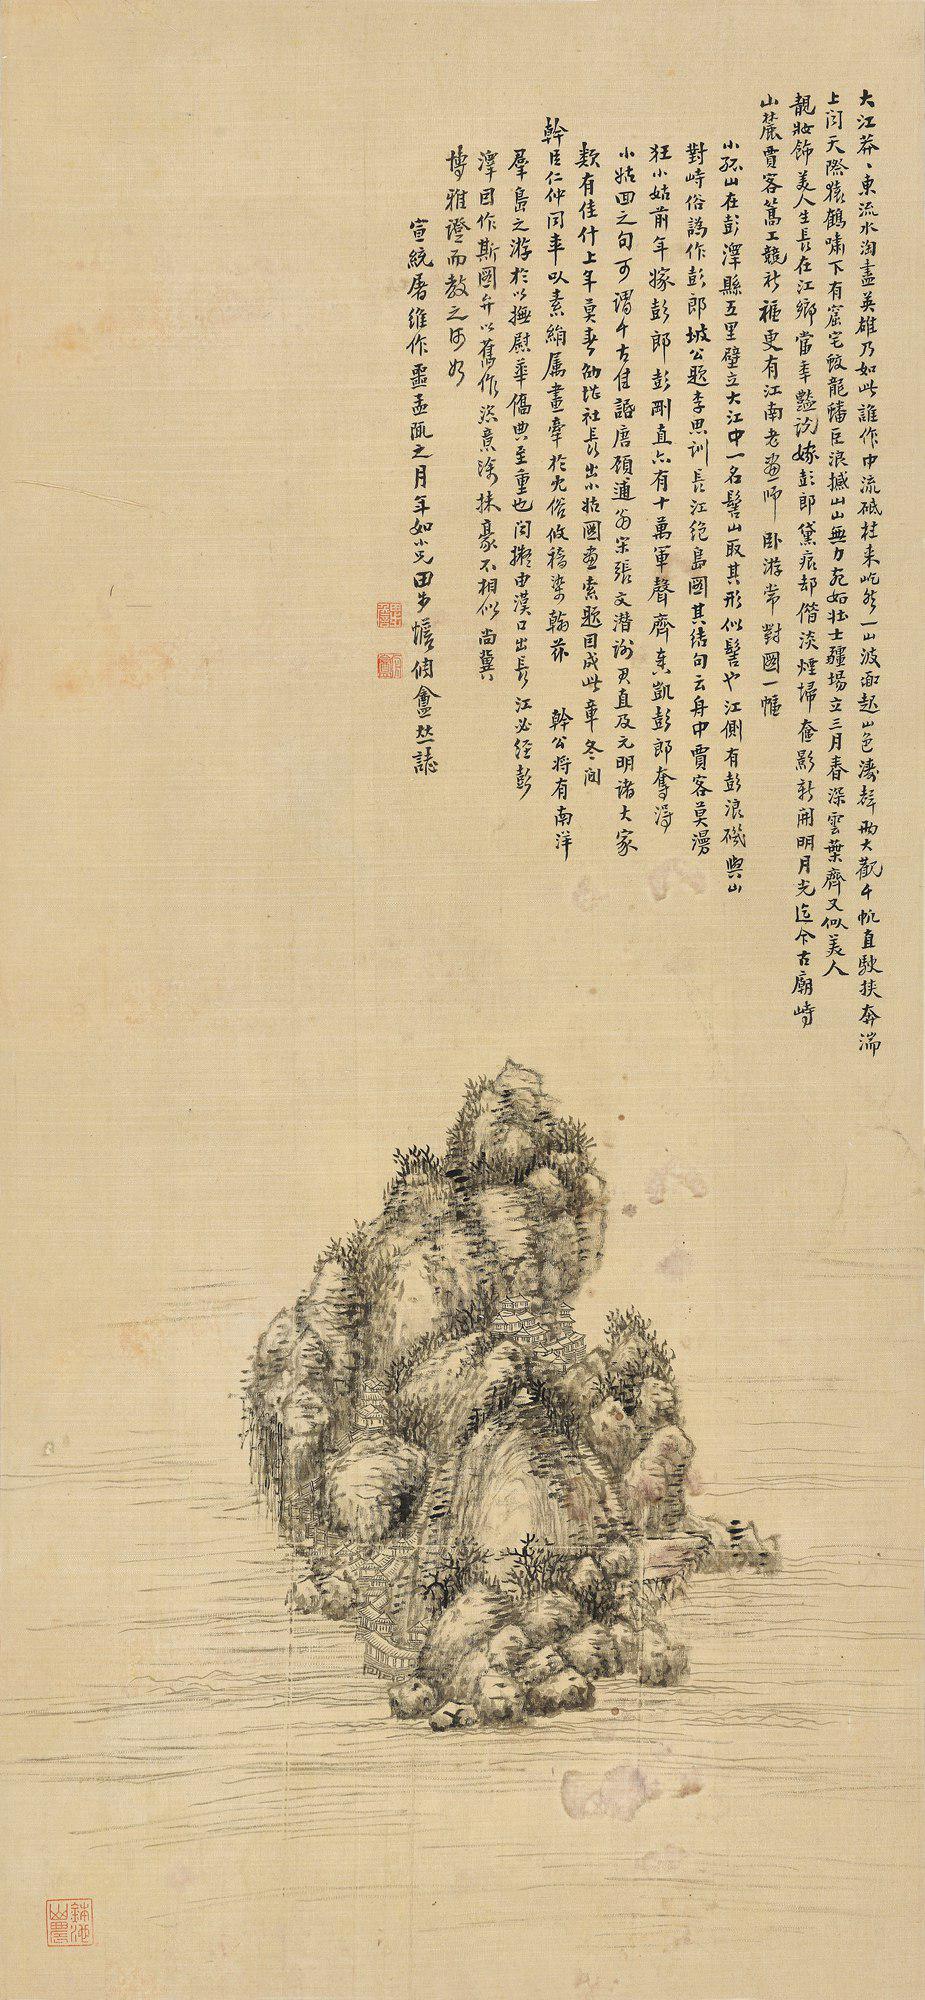 大江莽々東流水淘盡英雄乃如此誰作中流砥柱来屹然一山波面起山色濤聲兩大觀千帆直駛挾奔湍
上閃天際猿鶴嘯下有窟宅蛟龍蟠巨浪撼山山無力宛如壮士疆場立三月春深雲葉齊又似美人
靚妝飾美人生長在江鄉當年豔説嫁彭郎黛痕却借淡煙埽奩影新開明月光迄今古廟峙
山麓賈客篙工競祈 更有江南老画師卧游常對圖一幅
小孤山在彭澤縣五里壁立大江中一名髻山取其形似髻也江側有彭浪磯與山
對峙俗訛作彭郎坡公題李思訓長江絶島圖其結句云舟中賈客莫漫
狂小姑前年嫁彭郎彭剛直亦有十萬軍聲齊奏凱彭郎奪得
小姑回之句可謂千古佳話唐顧逋翁宋張文潜謝君直及元明諸大家
類有佳什上年莫春 社長出小姑圖画索題因成此章冬間
幹臣仁仲同年以素絹屬畫牽於冗俗攸稽染翰茲 幹公將有南洋
羣島之游於以撫慰華僑典至重也聞擬由漢口出長江必經彭
澤因作斯圖并以舊作恣意塗抹豪不相似尚冀
博雅證而教之何如
宣統屠維作噩孟陬之月年如小兄田步蟾 盦 誌